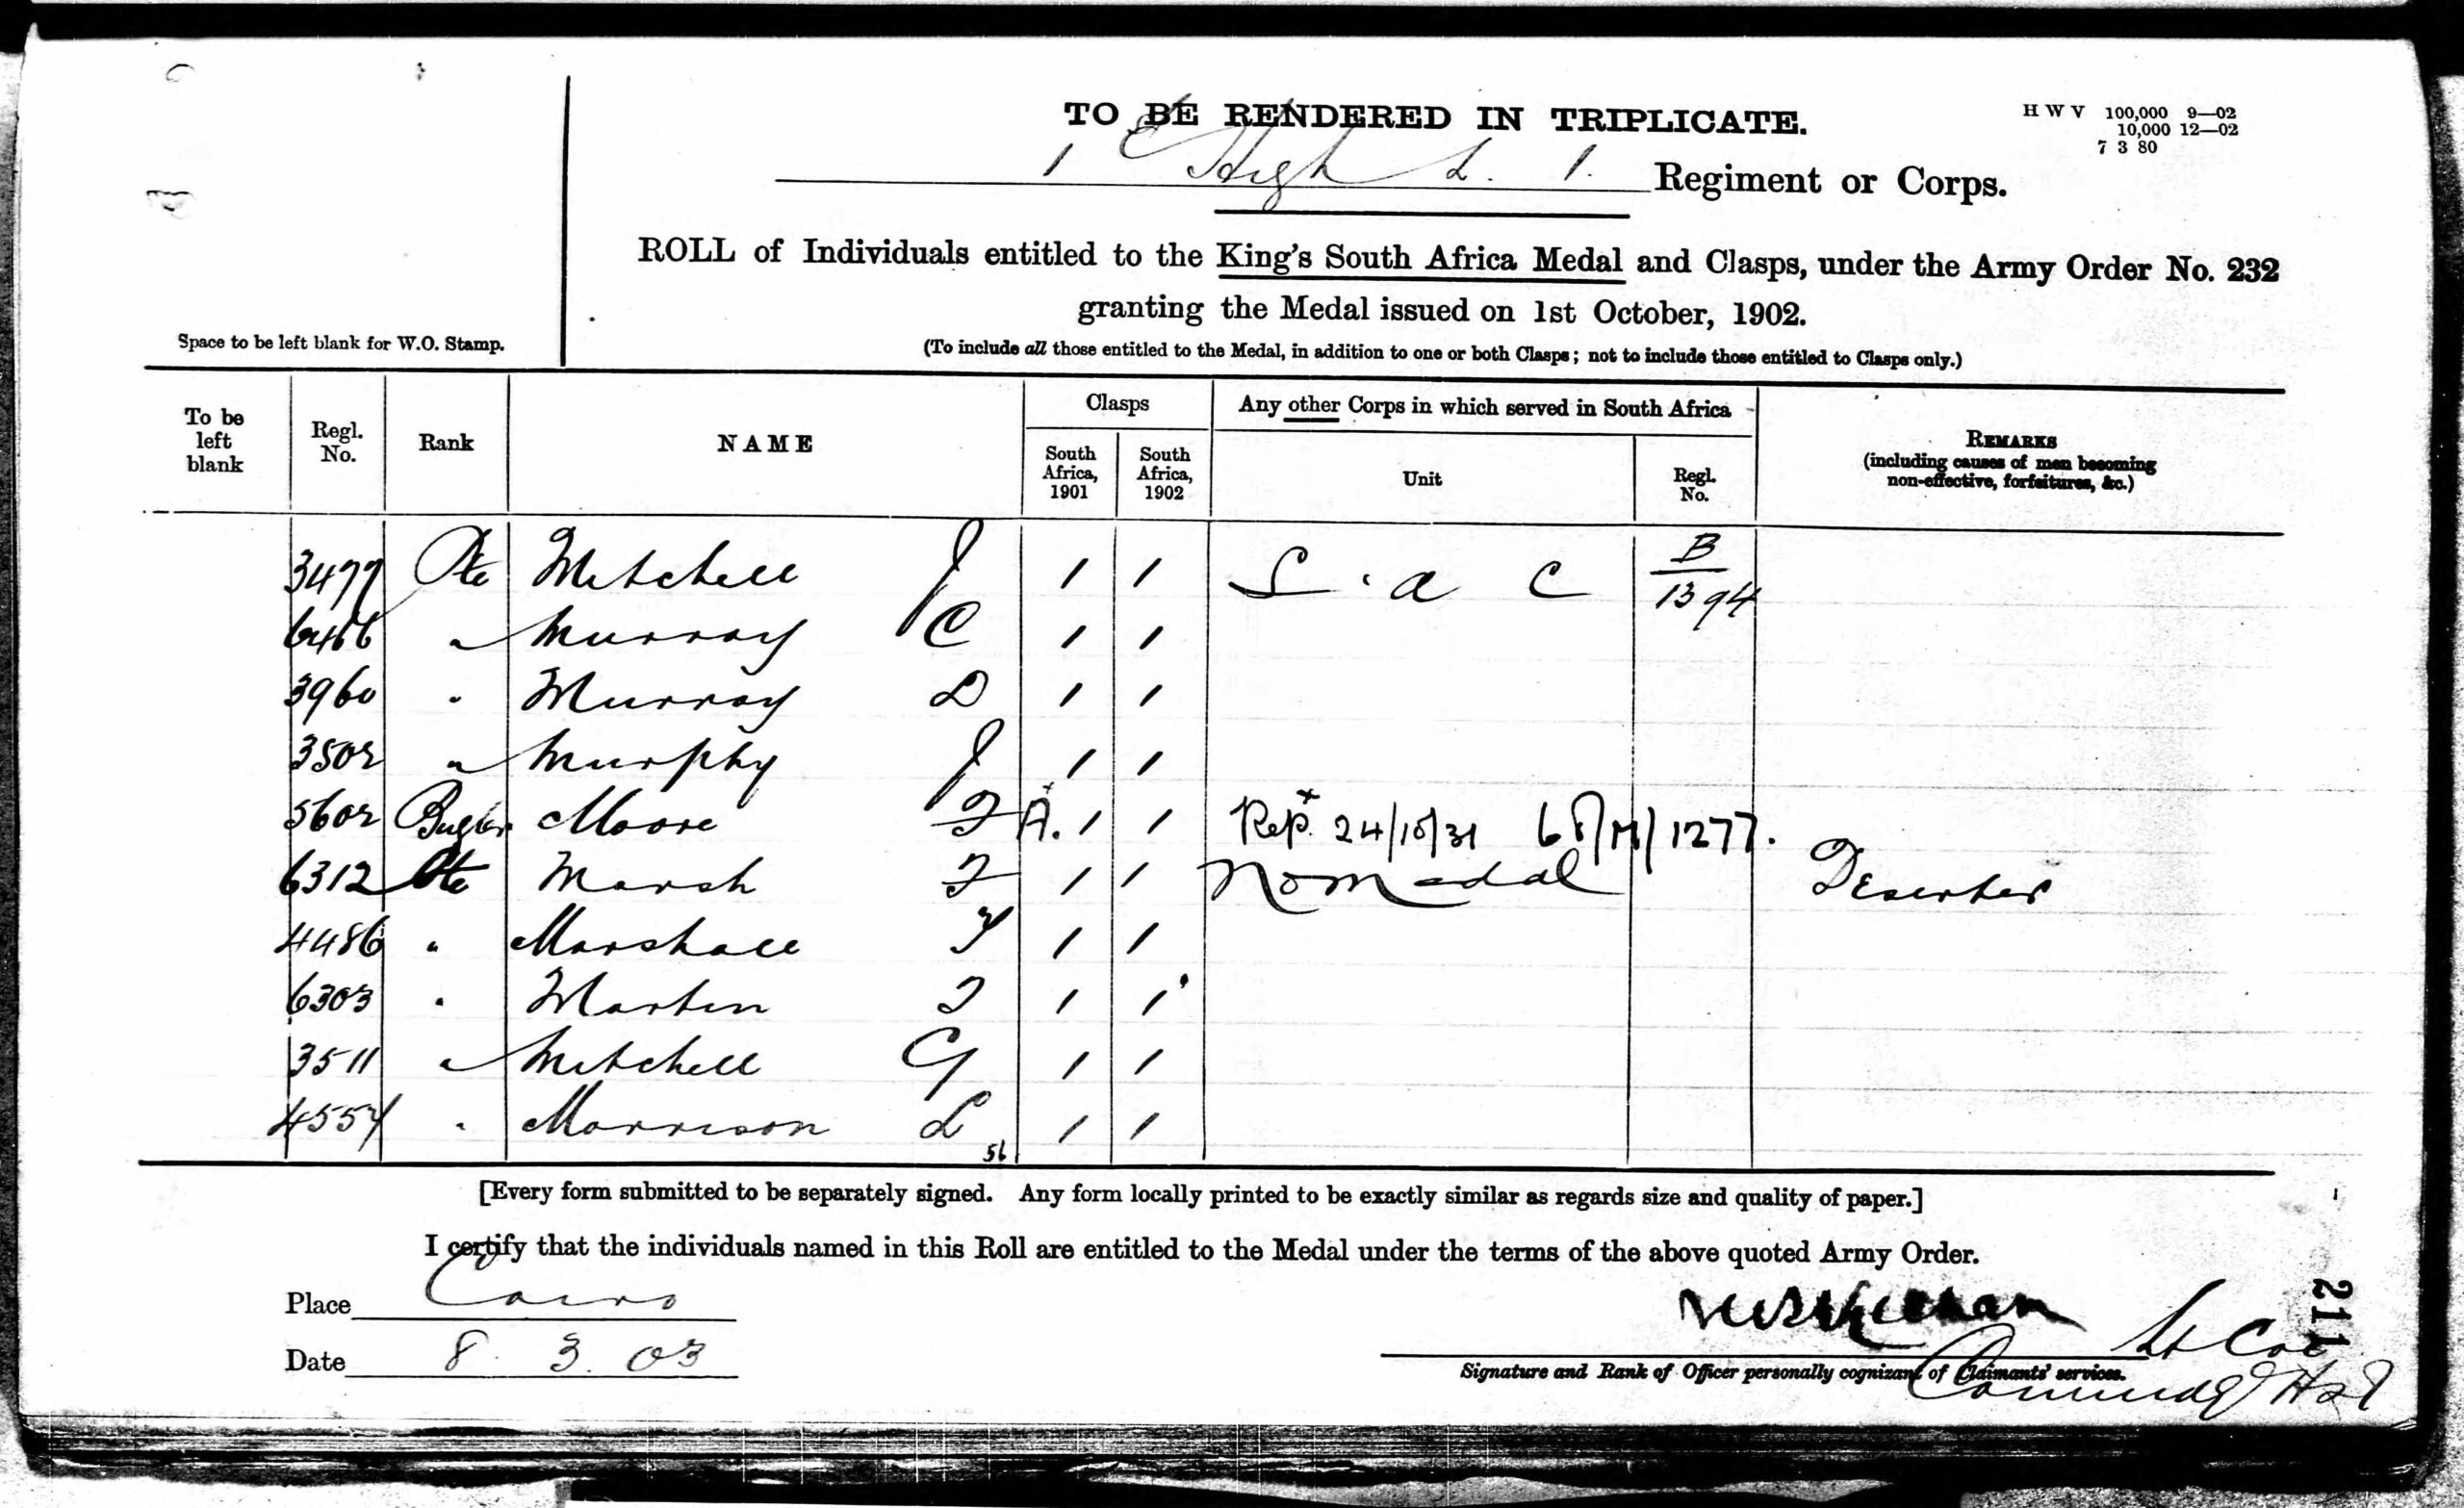 TO BE RENDERED IN TRIPLICATE.
H W V 100,000 9—02
10,000 12—02
7 3 80
1 High L. I. Regiment or Corps.
ROLL of Individuals entitled to the King's South Africa Medal and Clasps, under the Army Order No. 232
granting the Medal issued on 1st October, 1902.
Space to be left blank for W.O. Stamp.
(To include all those entitled to the Medal, in addition to one or both Clasps; not to include those entitled to Clasps only.)
To be left blank
Regl. No.
Rank
NAME
Clasps
South Africa, 1901
South Africa, 1902
Any other Corps in which served in South Africa
Unit
Regl. No.
REMARKS
(including causes of men becoming non-effective, forfeitures, &c.)
3477 Pte Mitchell J 1 1 S. a C B/1394
6466 " Murray C 1 1
3960 " Murray D 1 1
3502 " Murphy J 1 1
5602 Bugler Moore F A. 1 1 Rep. 24/10/31 68/M/1277.
6312 Pte Marsh F 1 1 No Medal Deserter
4486 " Marshall T 1 1
6303 " Martin J 1 1
3511 " Mitchell G 1 1
4554 " Morrison L 1 1
56
[Every form submitted to be separately signed. Any form locally printed to be exactly similar as regards size and quality of paper.]
I certify that the individuals named in this Roll are entitled to the Medal under the terms of the above quoted Army Order.
Place Cairo
Date 8. 3. 03
Lt Col
Signature and Rank of Officer personally cognizant of Claimants' services.
211